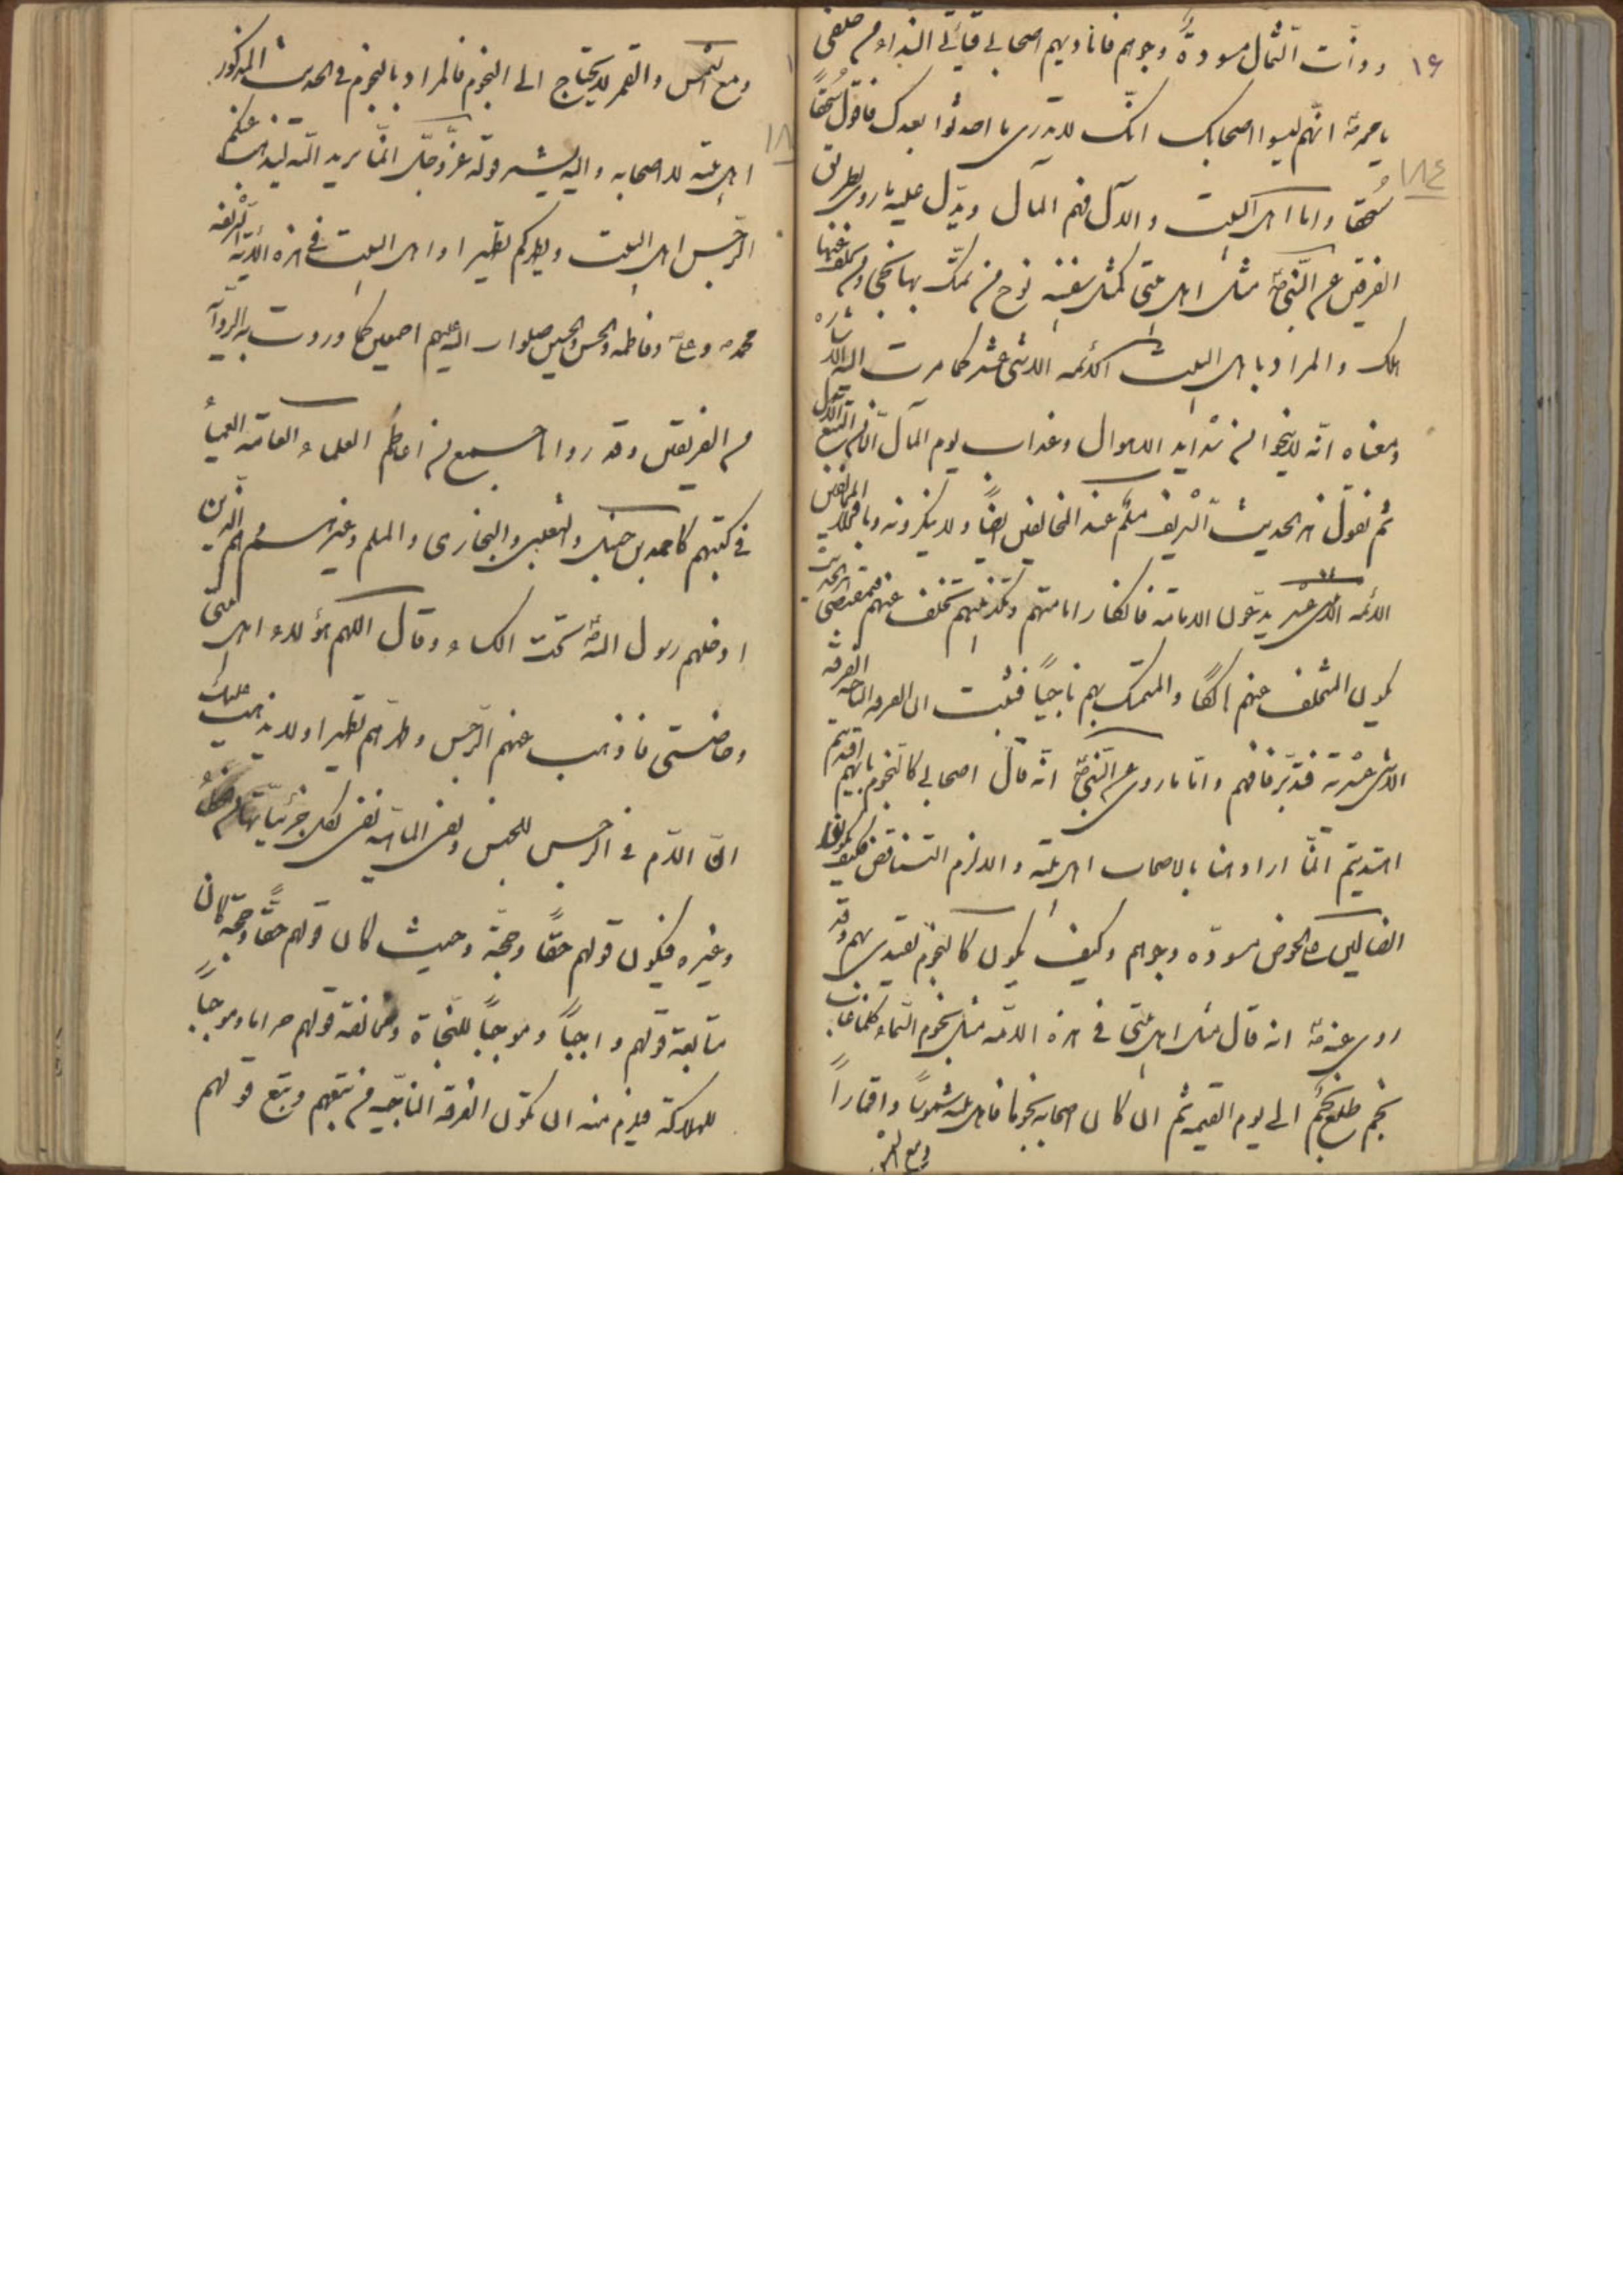 ١۶
١٨٤
وذات الشمال مسودةً وجوههم فاناديهم اصحابى فيأتى النداء من خلفى
يا محمد ص انهم ليسوا اصحابك انك لا تدرى ما احدثوا بعدك فاقول سُحقاً
سُحقا واما اهل البيت والآل فهم المآل ويدل عليه ما روى بطريق
الفريقين عن النبى ص مثل اهل بيتى كمثل سفينة نوح من تمسك بها نجى ومن تخلف عنها
هلك والمراد باهل البيت الائمه الاثنى عشر كما مرت اليه الاشاره
ومعناه انه لا ينجوا من شدايد الاهوال وعذاب يوم المآل الا من اتبع الآل
ثم نقول هذا الحديث الشريف مسلّم عند المخالفين ايضاً ولا ينكرونه وباقرار المخالفين
الائمه الاثنى عشر يدعون الامامة فانكار امامتهم وتكذيبهم تخلف عنهم فبمقتضى الحديث
يكون المتخلف عنهم هالكاً والمتمسك بهم ناجياً فثبت ان الفرقه الناجيه الفرقه
الاثنى عشرية فتدبر فافهم واما ما روى عن النبى ص انه قال اصحابى كالنجوم بايهم اقتديتم
اهتديتم انما اراد هنا بالاصحاب اهل بيته والا لزم التناقض فكيف يكونوا
الضالين على الحوض مسوده وجوههم وكيف يكون كالنجوم يقتدى بهم وقد
روى عنه ص انه قال مثل اهل بيتى فى هذه الامة مثل نجوم السماء كلما غاب
نجم طلع نجم الى يوم القيمه ثم ان كان اصحابه نجوما فاهل بيته شموساً واقماراً
ومع الشمس
ومع الشمس والقمر لا يحتاج الى النجوم فالمراد بالنجوم فى الحديث المذكور
اهل بيته لا اصحابه واليه يشير قوله عزّ وجلّ انما يريد الله ليذهب عنكم
الرجس اهل البيت ويطهركم تطهيرا واهل البيت فى هذه الآية الشريفه
محمد ص وعلى وفاطمه والحسن والحسين صلوات الله عليهم اجمعين كما وردت به الروآيه
من الفريقين وقد رواه جمع من اعاظم العلماء العامة العمياء
فى كتبهم كاحمد بن حنبل والثعلبى والبخارى والمسلم وغيرهم هم الذين
ادخلهم رسول الله ص تحت الكساء وقال اللهم هؤلاء اهل بيتى
وخاصتى فاذهب عنهم الرجس وطهرهم تطهيرا ولا يذهب عليك
انّ اللام فى الرجس للجنس ونفى الماهية نفى لكل جزئياتها من الخطاء
وغيره فيكون قولهم حقاً وحجة وحيث كان قولهم حقاً وحجة كان
متابعة قولهم واجباً وموجباً للنجاة ومخالفة قولهم حراما وموجباً
للهلاكة فيلزم منه ان تكون الفرقة الناجيه من تبعهم ويتبع قولهم